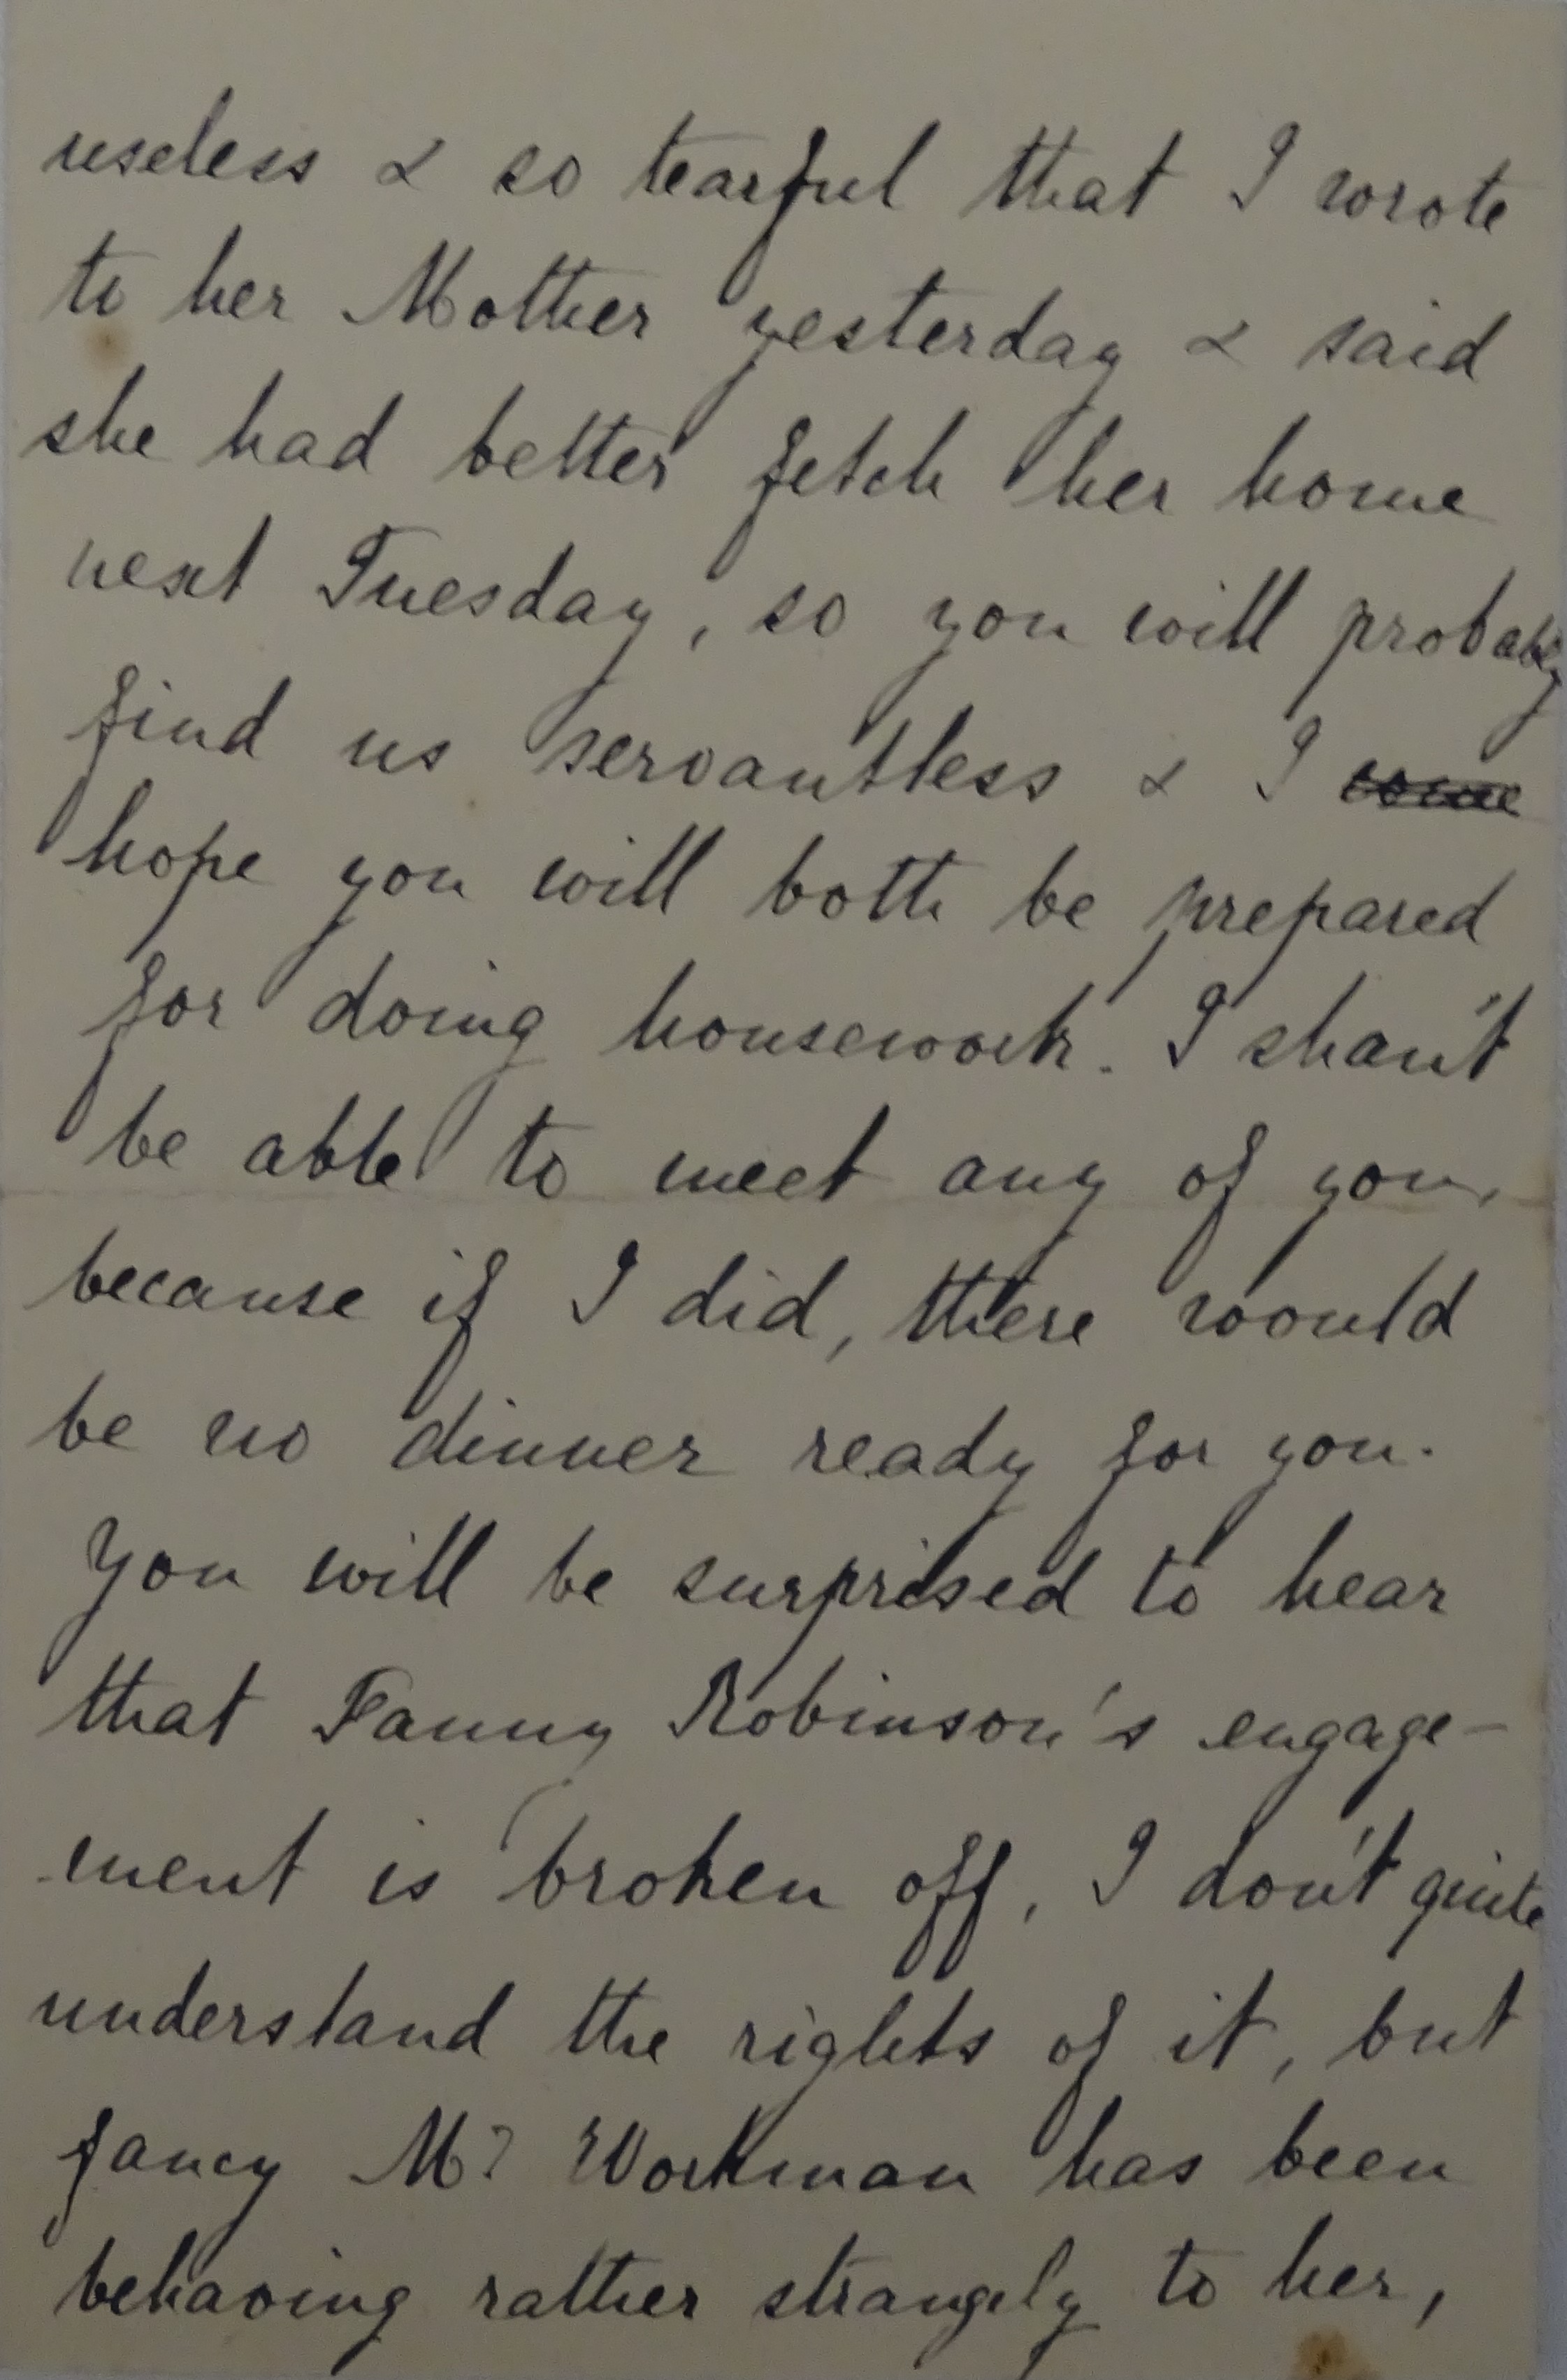 useless & so tearful that I wrote
to her Mother yesterday & said
she had better fetch her home
next Tuesday, so you will probably
find us servantless & I
hope you will both be prepared
for doing housework. I shan't
be able to meet any of you,
because if I did, there would
be no dinner ready for you.
You will be surprised to hear
that Fanny Robinson's engage-
ment is broken off, I don't quite
understand the rights of it, but
fancy Mr Workman has been
behaving rather strangely to her,